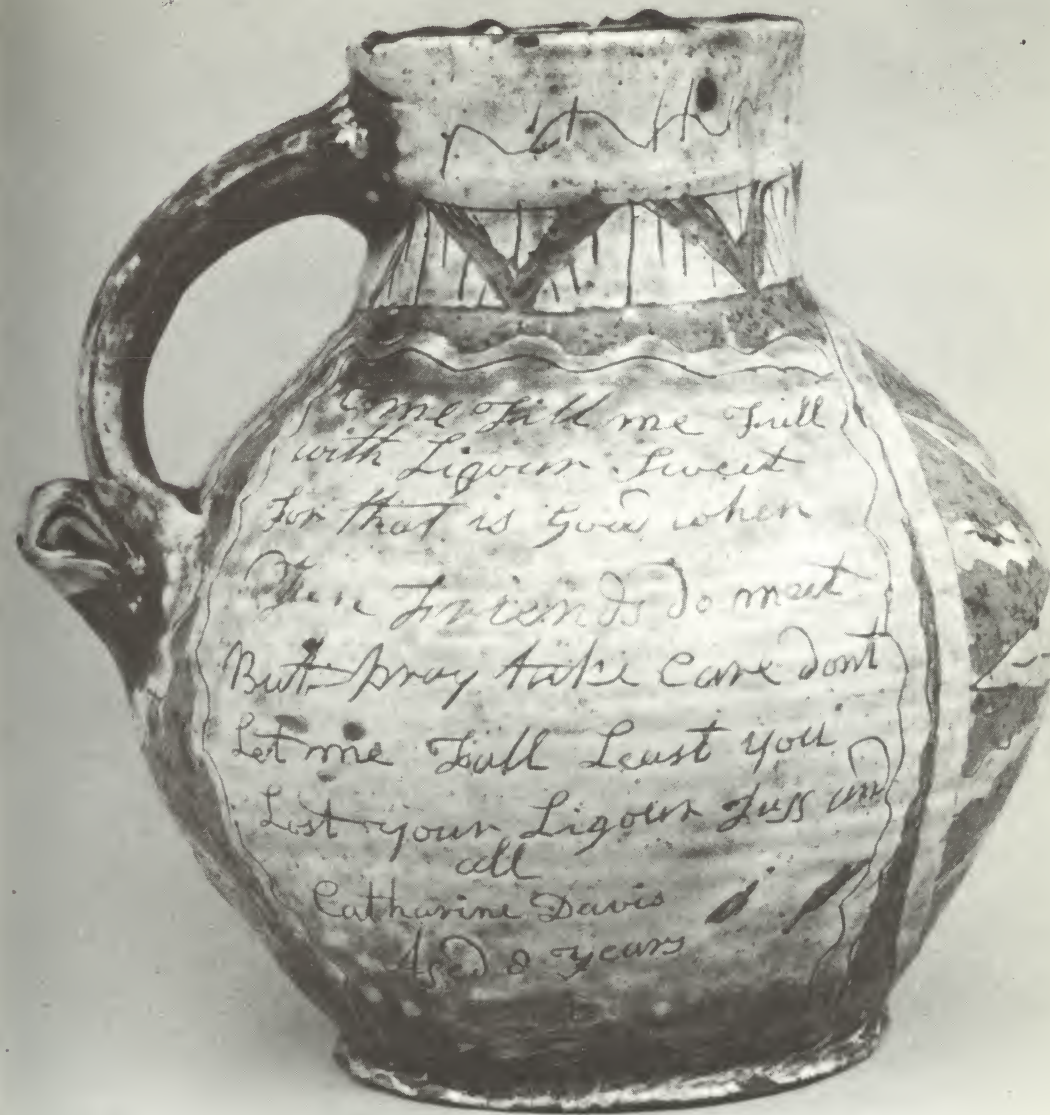 me Fill me Full
with Ligour Sweet
For that is Good when
Friends do meet
But pray take Care dont
Let me Fall Least you
Lost your Ligour Jugg and
all
Catharine Davis
Aged 8 years